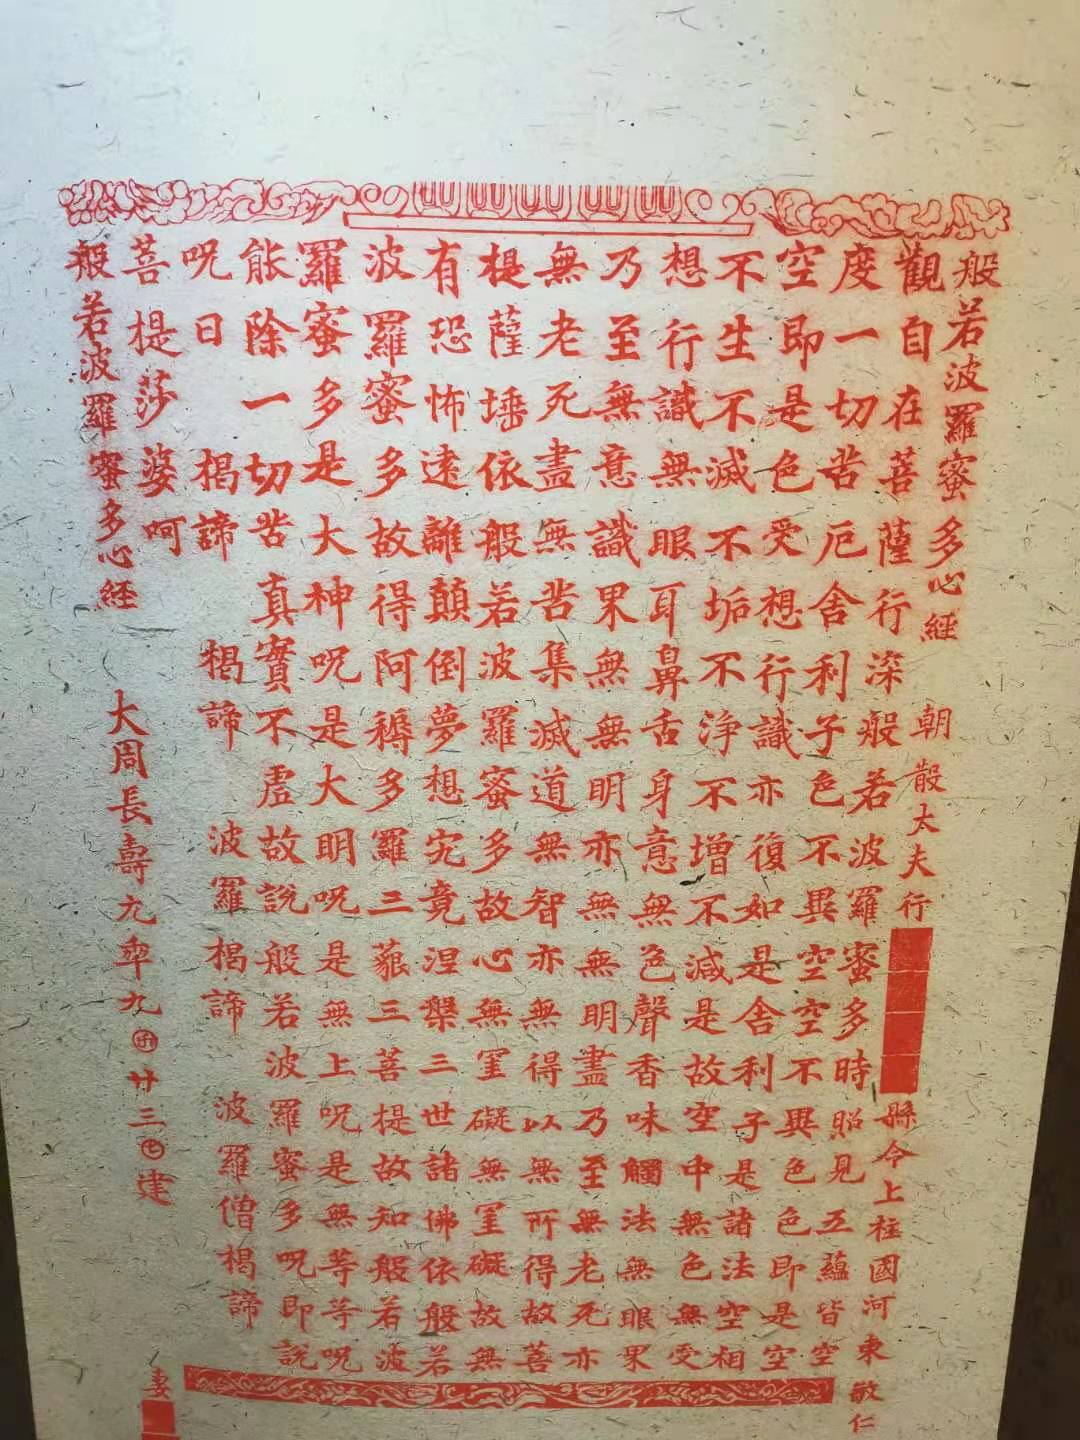 般若波羅蜜多心經 朝散太夫行 縣令上柱國河東 敬仁
觀自在菩薩行深般若波羅蜜多時照見五蘊皆空
度一切苦厄舍利子色不異空空不異色色即是空
空即是色受想行識亦復如是舍利子是諸法空相
不生不滅不垢不淨不增不減是故空中無色無受
想行識無眼耳鼻舌身意無色聲香味觸法無眼果
乃至無意識果無無明亦無無明盡乃至無老死亦
無老死盡無苦集滅道無智亦無得以無所得故菩
提薩埵依般若波羅蜜多故心無罣礙無罣礙故無
有恐怖遠離顛倒夢想究竟涅槃三世諸佛依般若
波羅蜜多故得阿耨多羅三藐三菩提故知般若波
羅蜜多是大神呪是大明呪是無上呪是無等等呪
能除一切苦真實不虛故說般若波羅蜜多呪即說
呪曰 楬諦 楬諦 波羅楬諦 波羅僧楬諦
菩提莎婆呵
般若波羅蜜多心經 大周長壽九年九 廿三 建
妻